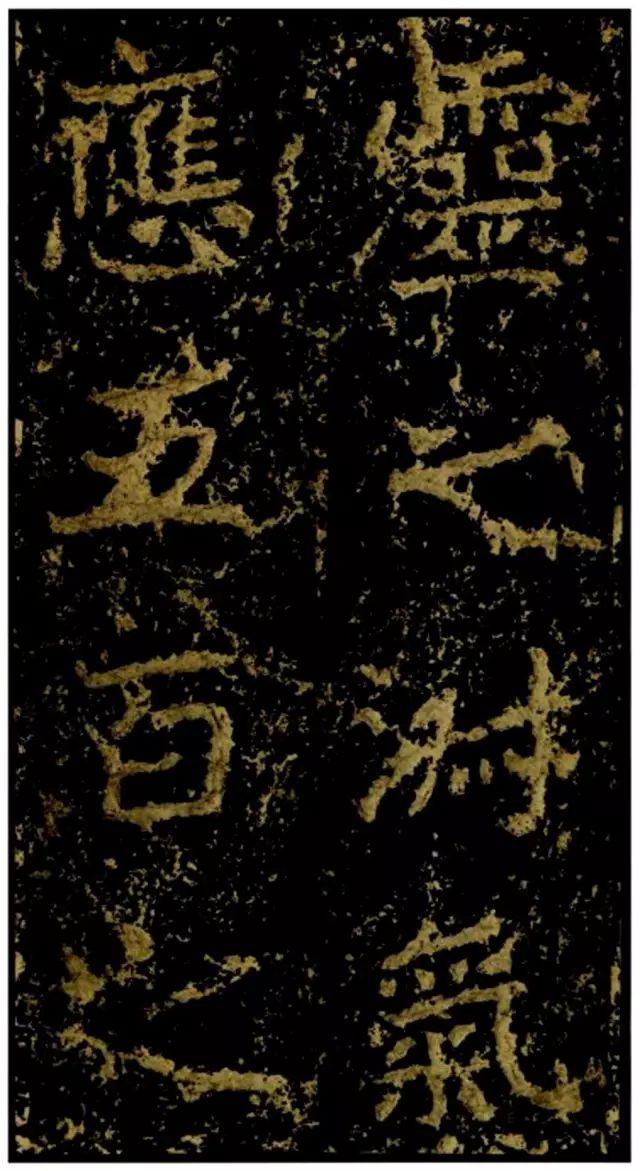 靈之淑氣
應五百之